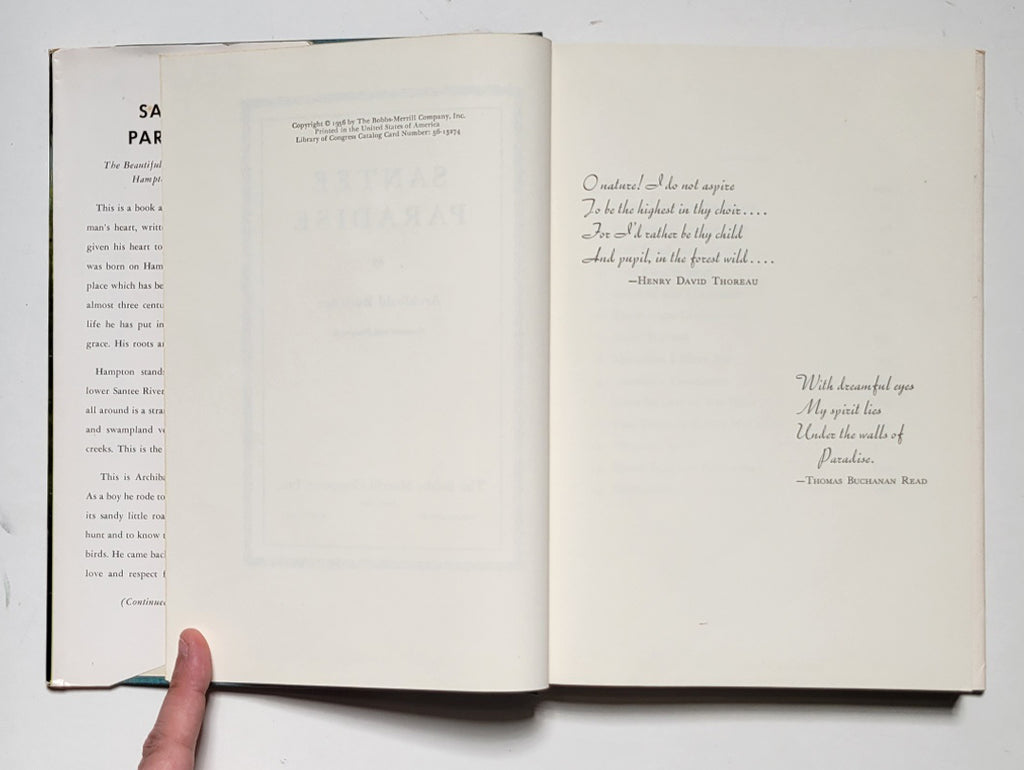 SA
PAR
The Beautiful
Hampt
This is a book a
man's heart, writt
given his heart to
was born on Ham
place which has be
almost three centu
life he has put in
grace. His roots a
Hampton stand
lower Santee River
all around is a stra
and swampland v
creeks. This is the
This is Archiba
As a boy he rode to
its sandy little roa
hunt and to know
birds. He came bac
love and respect f
(Continued
Copyright © 1956 by The Bobbs-Merrill Company, Inc.
Printed in the United States of America
Library of Congress Catalog Card Number: 56-13274
SANTEE
PARADISE
O nature! I do not aspire
To be the highest in thy choir....
For I'd rather be thy child
And pupil, in the forest wild....
—HENRY DAVID THOREAU
With dreamful eyes
My spirit lies
Under the walls of
Paradise.
—THOMAS BUCHANAN READ